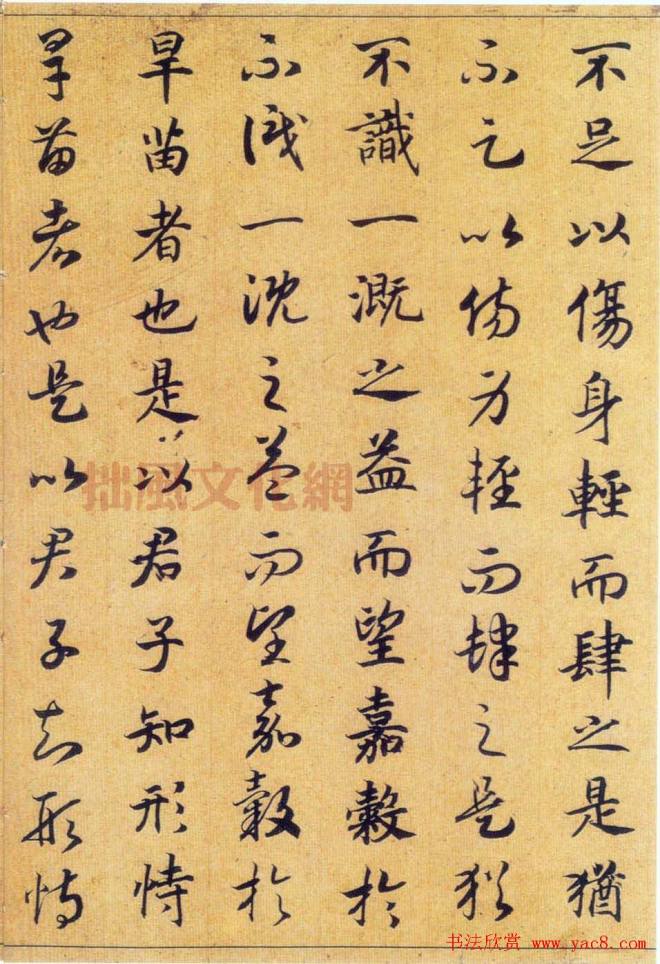 不足以傷身輕而肆之是猶
不足以傷身輕而肆之是猶
不識一溉之益而望嘉穀於
不識一溉之益而望嘉穀於
旱苗者也是以君子知形恃
旱苗者也是以君子知形恃
拙風文化網
书法欣赏 www.yac8.com